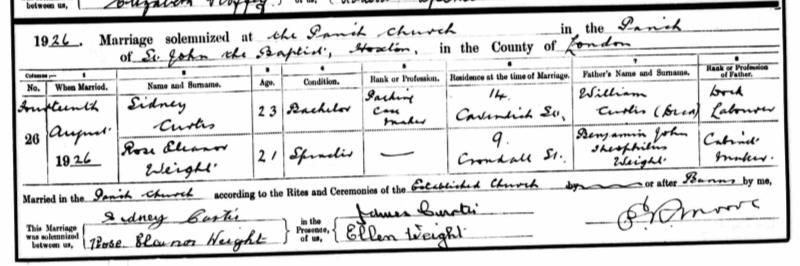 between us,
1926. Marriage solemnized at the Parish Church in the Parish
of St. John the Baptist, Hoxton, in the County of London
Columns:— 1 2 3 4 5 6 7 8
No. When Married. Name and Surname. Age. Condition. Rank or Profession. Residence at the time of Marriage. Father's Name and Surname. Rank or Profession of Father.
26
Fourteenth
August
1926
Sidney
Curtis
23
Bachelor
Packing
Case
Maker
14.
Cavendish St.
William
Curtis (Decd)
Dock
Labourer
Rose Eleanor
Weight
21
Spinster
—
9.
Crondall St.
Benjamin John
Theophilus
Weight
Cabinet
Maker.
Married in the Parish Church according to the Rites and Ceremonies of the Established Church by or after Banns by me,
This Marriage
was solemnized
between us,
Sidney Curtis
Rose Eleanor Weight
in the
Presence
of us,
James Curtis
Ellen Weight
Moore